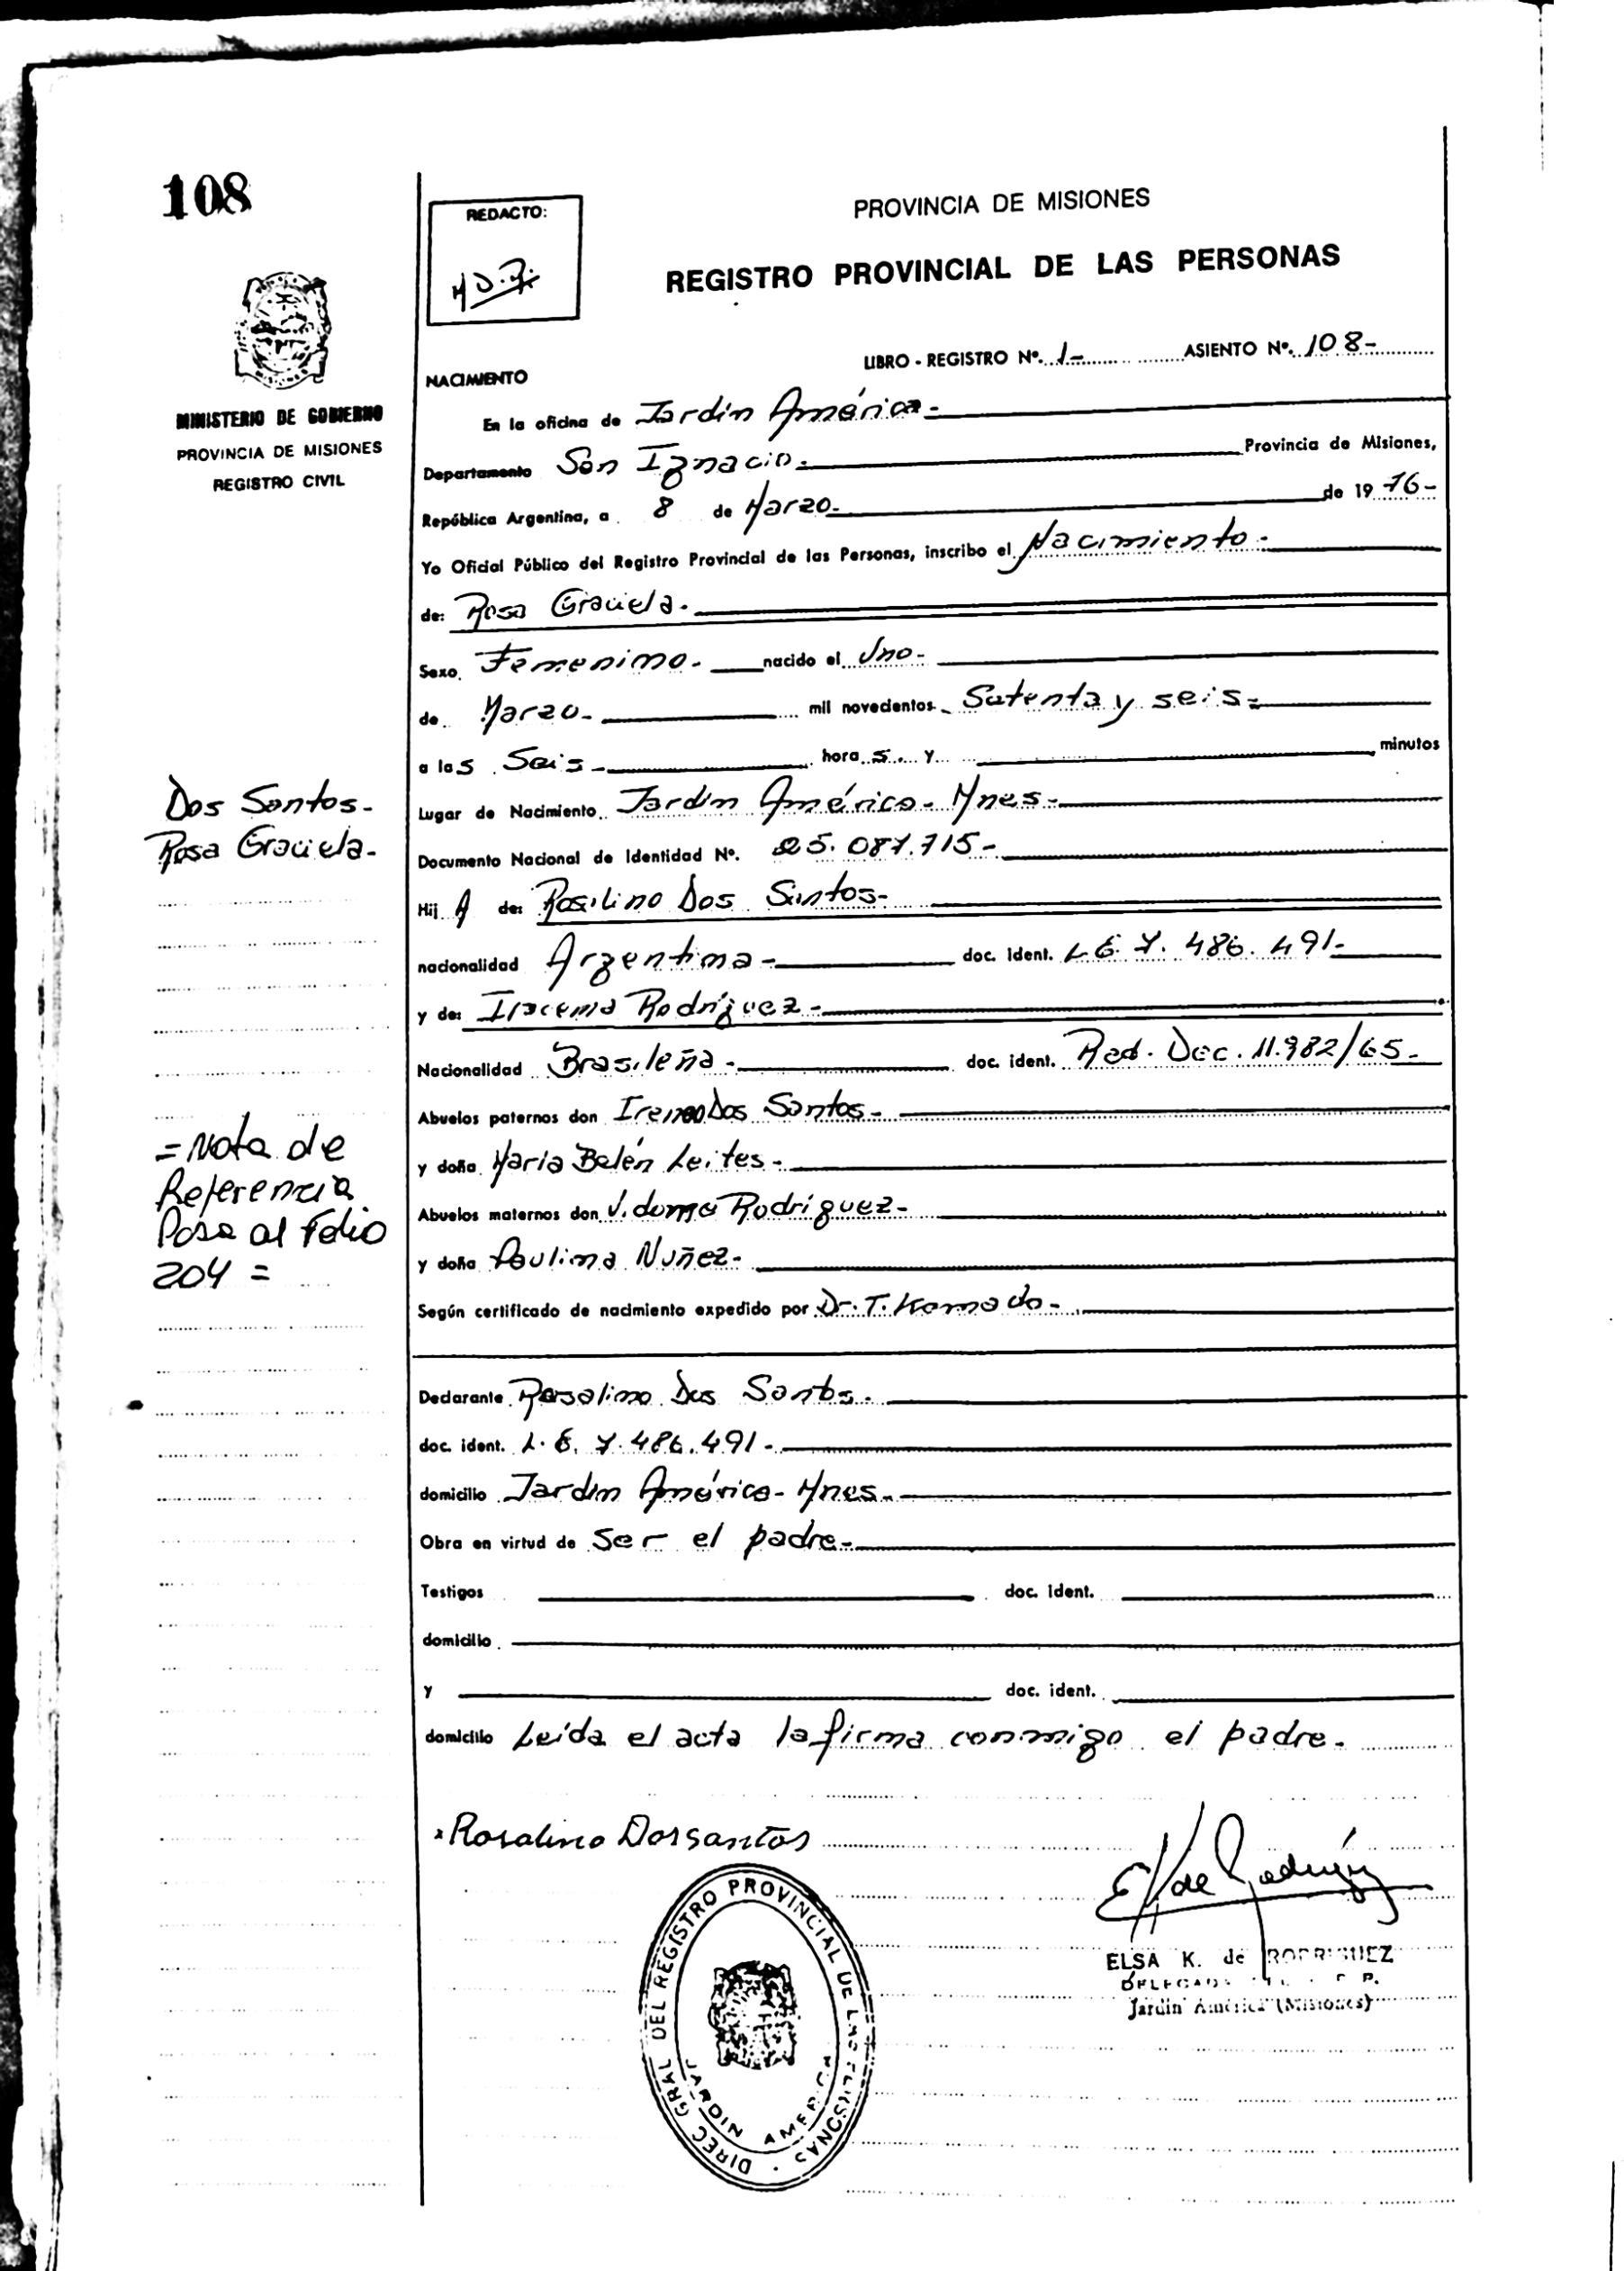 108
REDACTO:
PROVINCIA DE MISIONES
REGISTRO PROVINCIAL DE LAS PERSONAS
LIBRO - REGISTRO Nº. 1- ASIENTO Nº. 108-
NACIMIENTO
MINISTERIO DE GOBIERNO
PROVINCIA DE MISIONES
REGISTRO CIVIL
En la oficina de Jardín América-
Departamento San Ignacio- Provincia de Misiones,
República Argentina, a 8 de Marzo- de 19 76-
Yo Oficial Público del Registro Provincial de las Personas, inscribo el Nacimiento-
de: Rosa Graciela-
Sexo Femenino- nacido el Uno-
de Marzo- mil novecientos Setenta y seis-
a las Seis- horas y minutos
Lugar de Nacimiento Jardín América- Mnes-
Dos Santos-
Rosa Graciela-
Documento Nacional de Identidad Nº. 25.087.715-
Hij A de: Rosalino Dos Santos-
nacionalidad Argentina- doc. ident. L.E. 7.486.491-
y de: Iracema Rodríguez-
Nacionalidad Brasileña- doc. ident. Rad. Dec. 11.982/65-
Abuelos paternos don Ireneo Dos Santos-
y doña María Belén Leites-
=Nota de
Referencia
Pasa al Folio
204 =
Abuelos maternos don Rodríguez-
y doña Paulina Nuñez-
Según certificado de nacimiento expedido por Dr. T. Kamado-
Declarante Rosalino Dos Santos-
doc. ident. L.E. 7.486.491-
domicilio Jardín América- Mnes-
Obra en virtud de Ser el padre-
Testigos doc. ident.
domicilio
y doc. ident.
domicilio Leída el acta la firma conmigo el padre-
Rosalino Dossantos
E K de Rodríguez
ELSA K. de RODRIGUEZ
Jardín América (Misiones)
DIREC GRAL DEL REGISTRO PROVINCIAL DE LAS PERSONAS
JARDIN AMERICA